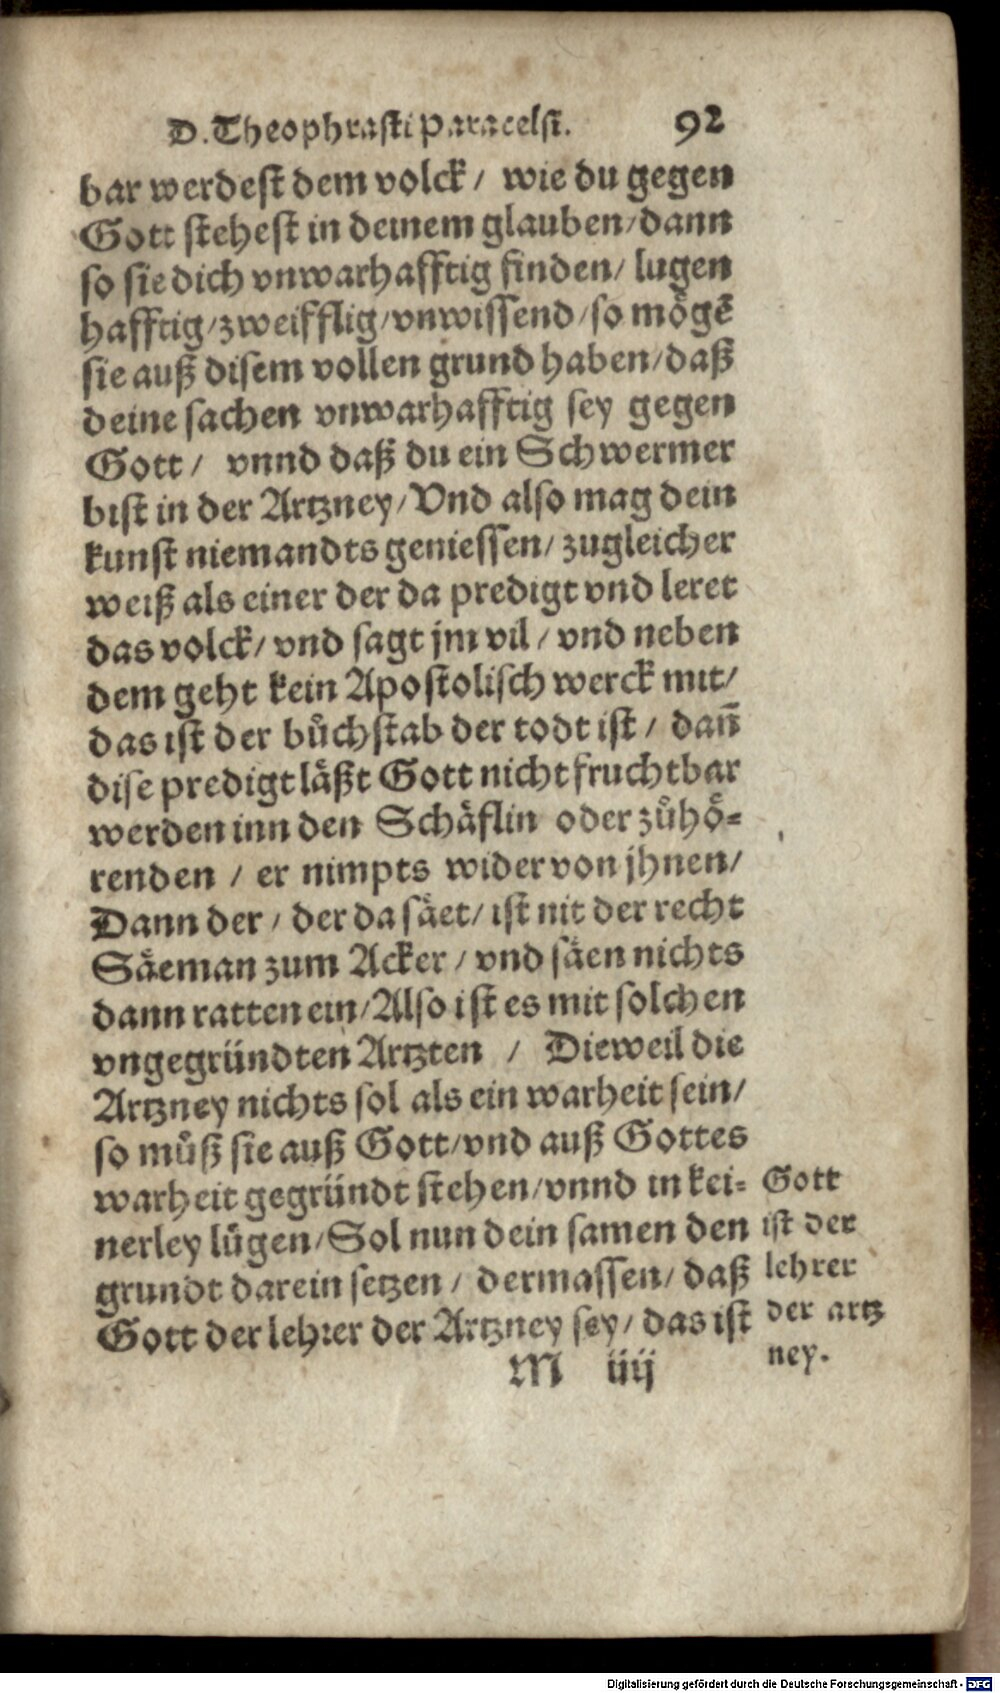 D. Theophrasti Paracelsi. 92
bar werdest dem volck / wie du gegen
Gott stehest in deinem glauben / dann
so sie dich vnwarhafftig finden / lugen
hafftig / zweifflig / vnwissend / so mögē
sie auß disem vollen grund haben / daß
deine sachen vnwarhafftig sey gegen
Gott / vnnd daß du ein Schwermer
bist in der Artzney / Vnd also mag dein
kunst niemandts geniessen / zugleicher
weiß als einer der da predigt vnd leret
das volck / vnd sagt jm vil / vnd neben
dem geht kein Apostolisch werck mit /
das ist der bůchstab der todt ist / dañ
dise predigt läßt Gott nicht fruchtbar
werden inn den Schäflin oder zůhö-
renden / er nimpts wider von jhnen /
Dann der / der da säet / ist nit der recht
Säeman zum Acker / vnd säen nichts
dann ratten ein / Also ist es mit solchen
vngegründten Artzten / Dieweil die
Artzney nichts sol als ein warheit sein /
so můß sie auß Gott / vnd auß Gottes
warheit gegründt stehen / vnnd in kei-
nerley lügen / Sol nun dein samen den
grundt darein setzen / dermassen / daß
Gott der lehrer der Artzney sey / das ist
Gott
ist der
lehrer
der artz
ney.
M iiij
Digitalisierung gefördert durch die Deutsche Forschungsgemeinschaft - DFG